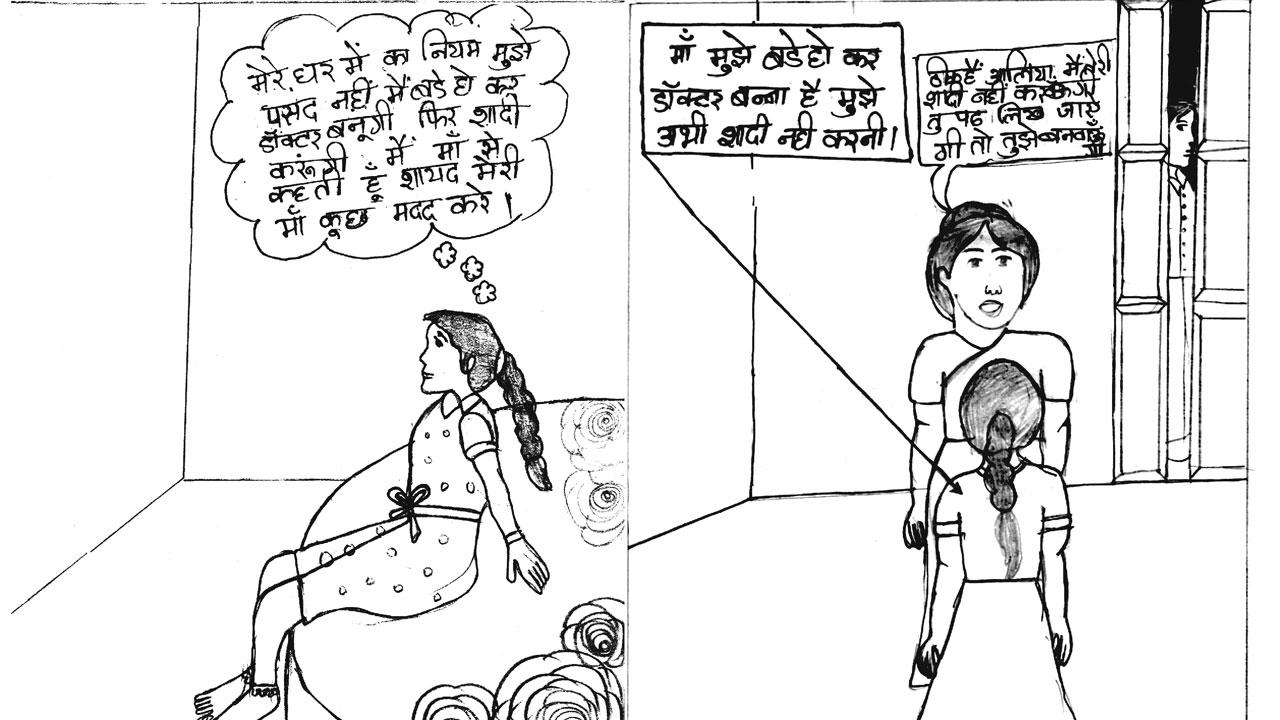 मेरे घर में का नियम मुझे
पसंद नहीं मैं बडे हो कर
डॉक्टर बनूगी फिर शादी
करूंगी मैं माँ से
कहती हूँ शायद मेरी
माँ कुछ मदद करे।
माँ मुझे बडे हो कर
डॉक्टर बन्ना है मुझे
अभी शादी नही करनी।
ठीक है आलिया मैं तेरी
शादी नहीं करूंगी
तु पढ लिख जाऐ
गी तो तुझे बनवाऊं
गी